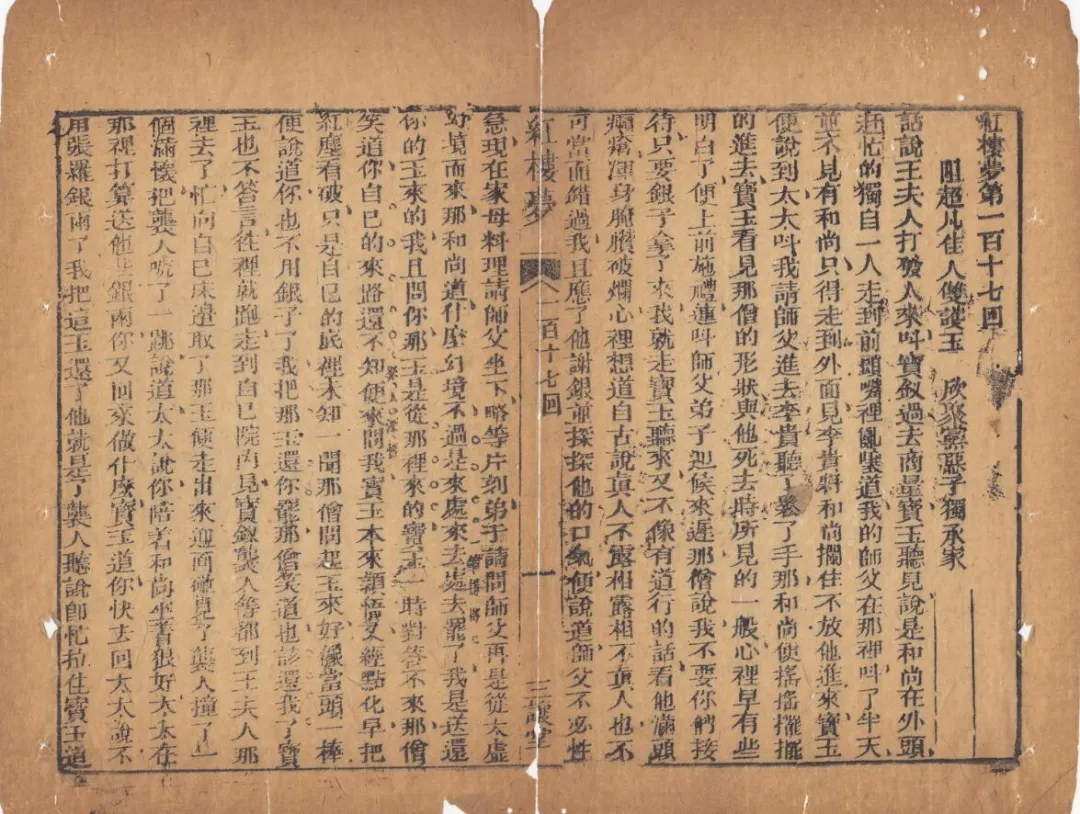 紅樓夢第一百十七回
阻超凡佳人雙護玉 欣聚黨惡子獨承家
話說王夫人打發人來呌寶釵過去商量寶玉聽見說是和尚在外頭
赶忙的獨自一人走到前頭嘴裡亂嚷道我的師父在那裡呌了半天
並不見有和尚只得走到外面見李貴將和尚攔住不放他進來寶玉
便說道太太呌我請師父進去李貴聽了鬆了手那和尚便搖搖擺擺
的進去寶玉看見那僧的形狀與他死去時所見的一般心裡早有些
明白了便上前施禮連呌師父弟子迎候來遲那僧說我不要你們接
待只要銀子拿了來我就走寶玉聽來又不像有道行的話看他滿頭
癩瘡渾身腌臢破爛心裡想道自古說真人不露相露相不真人也不
可當面錯過我且應了他謝銀並探探他的口氣便說道師父不必性
紅樓夢 一百十七回 一 三讓堂
急現在家母料理請師父坐下略等片刻弟子請問師父可是從太虛
幻境而來那和尚道什麼幻境不過是來處來去處去罷了我是送還
你的玉來的我且問你那玉是從那裡來的寶玉一時對答不來那僧
笑道你自己的來路還不知便來問我寶玉本來穎悟又經點化早把
紅塵看破只是自己的底裡未知一聞那僧問起玉來好像當頭一棒
便說道你也不用銀子了我把那玉還你罷那僧笑道也該還我了寶
玉也不答言徃裡就跑走到自己院內見寶釵襲人等都到王夫人那
裡去了忙向自己床邊取了那玉便走出來迎面碰見了襲人撞了一
個滿懷把襲人唬了一跳說道太太說你陪着和尚坐着狠好太太在
那裡打算送他些銀兩你又回來做什麼寶玉道你快去回太太說不
用張羅銀兩了我把這玉還了他就是了襲人聽說卽忙拉住寶玉道